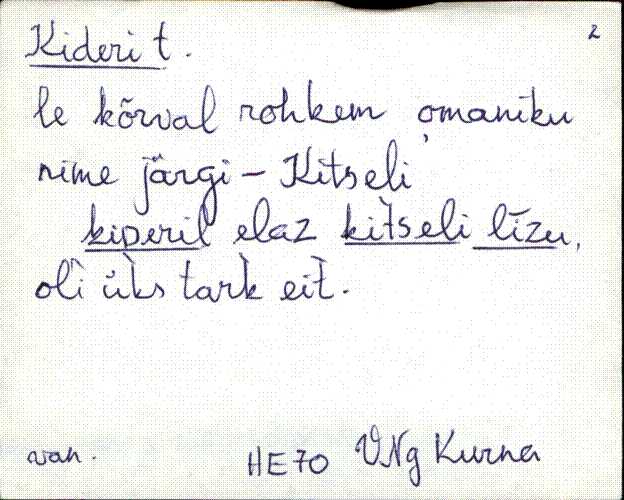 2
Kideri t.
le kõrval rohkem omaniku
nime järgi – Kitseli
kiDeril elaz kìtseli līzu,
olì ùks tark̀ eit̀.
van. HE70 VNg Kurna